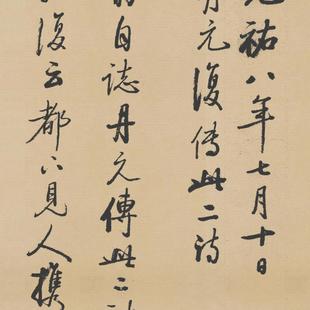 元祐八年七月十日
丹元復傳此二詩
自誌丹元傳此二詩
復云都下見人攜